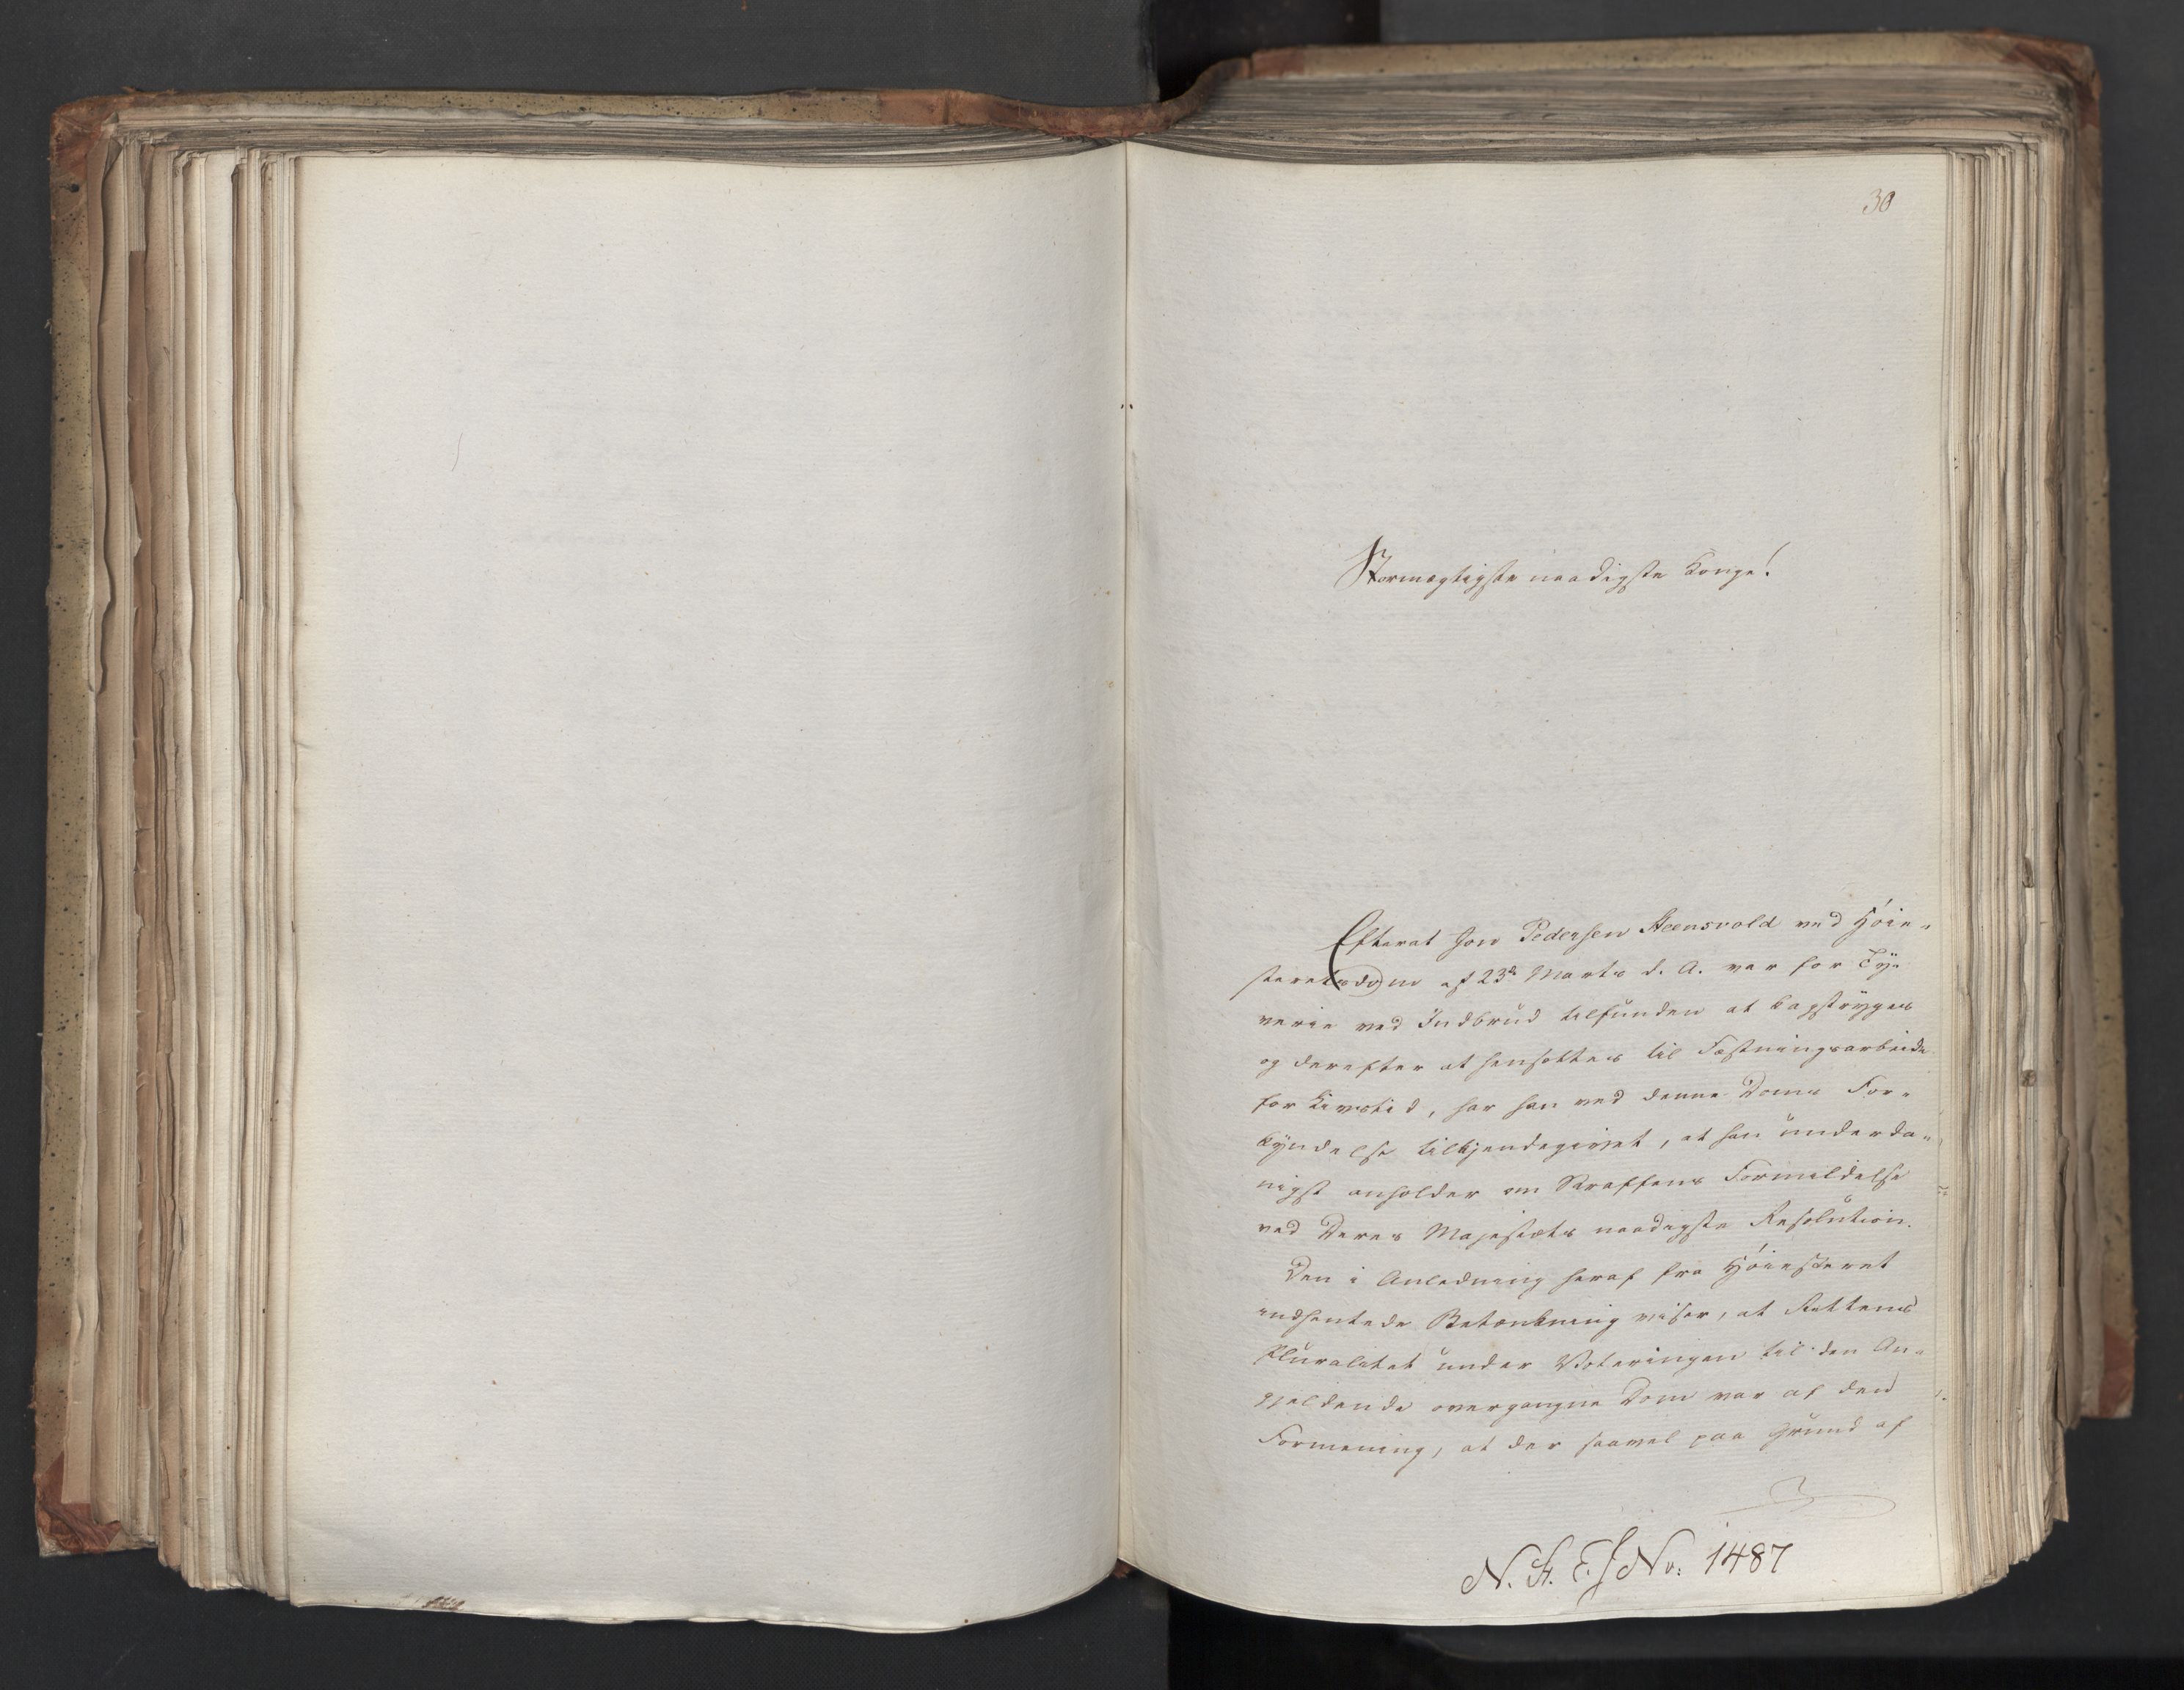 30
Stormægtigste naadigste Konge!
Efterat Jon Pedersen Steensvold ved Høie-
steretsdom af 23de Marts d. A. var for Ty-
verie ved Indbrud tilfunden at kagstryges
og derefter at hensættes til Fæstningsarbeide
for Livstid, har han ved denne Doms For-
kyndelse tilkjendegivet, at han underda-
nigst anholder om Straffens Formildelse
ved Deres Majestæts naadigste Resolution.
Den i Anledning heraf fra Høiesteret
indhentede Betænkning viser, at Rettens
Pluralitet under Voteringen til den An-
gjeldende overgangne Dom var af den
Formening, at der saavel paa Grund af
N. St. E. J No: 1487